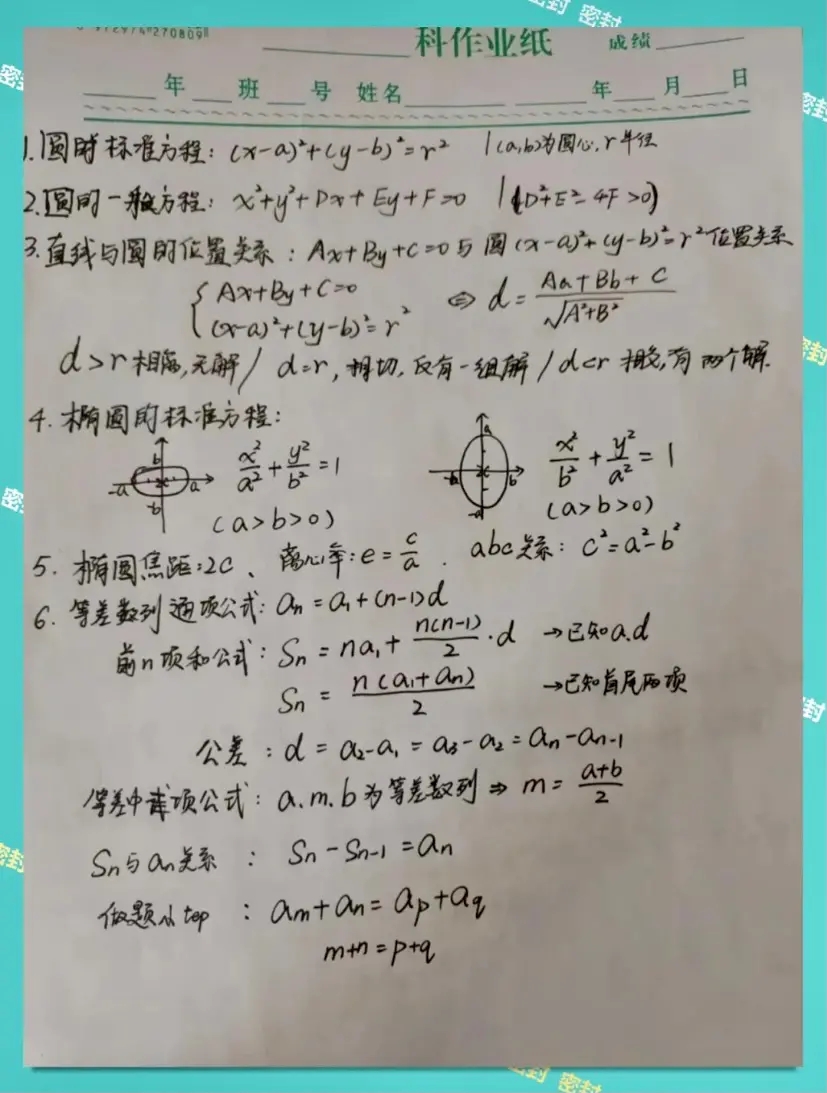 密封 密封
科作业纸 成绩
年 班 号 姓名 年 月 日
1. 圆的标准方程: (x-a)²+(y-b)²=r² | (a,b)为圆心, r半径
2. 圆的一般方程: x²+y²+Dx+Ey+F=0 | (D²+E²-4F>0)
3. 直线与圆的位置关系: Ax+By+C=0与圆(x-a)²+(y-b)²=r²位置关系
{ Ax+By+C=0
(x-a)²+(y-b)²=r² ⇔ d = Aa+Bb+C / √A²+B²
d>r相离, 无解 / d=r, 相切, 只有一组解 / d<r 相交, 有两个解.
4. 椭圆的标准方程:
b -a a -b x²/a² + y²/b² = 1 a -b b -a x²/b² + y²/a² = 1
(a>b>0) (a>b>0)
5. 椭圆焦距:2c、 离心率: e = c/a . abc关系: c²=a²-b²
6. 等差数列通项公式: an = a1+(n-1)d
前n项和公式: Sn = na1 + n(n-1)/2 ·d →已知a.d
Sn = n(a1+an)/2 →已知首尾两项
公差: d = a2-a1 = a3-a2 = an-an-1
等差中项公式: a.m.b为等差数列 ⇒ m = a+b/2
Sn与an关系 : Sn-Sn-1 = an
做题小top : am+an = ap+aq
m+n = p+q
密封
密封
密封
密封
密封
密封
密封 密封